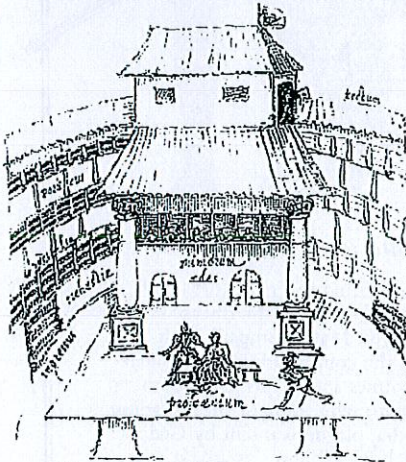 tectum
porticus
mimorum
ædes
orchestra
ingressus
proscænium.